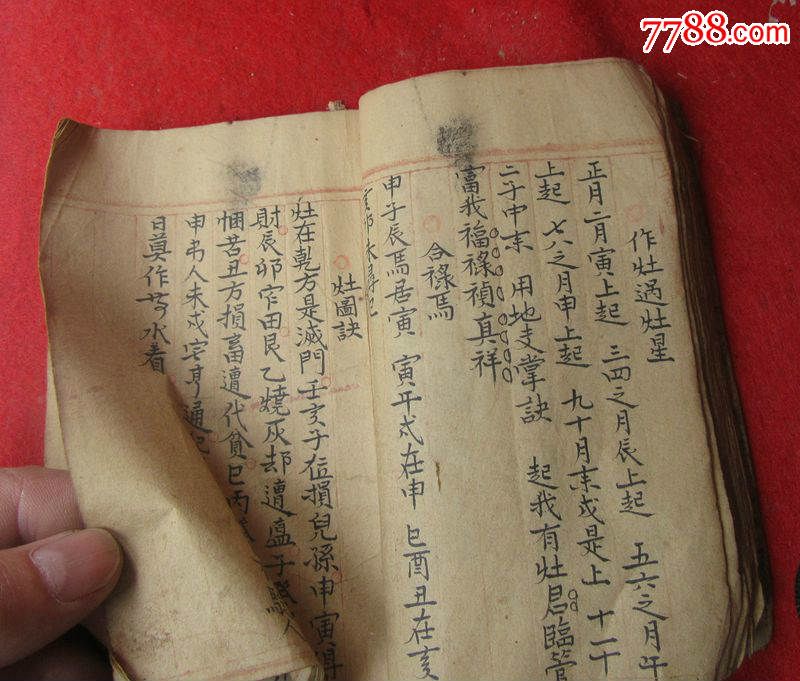 7788.com
作灶遇灶星
正月二月寅上起 三四之月辰上起 五六之月午
上起 七八之月申上起 九十月末戌是上 十一十
二子中末 用地支掌訣 起我有灶君臨管
富我福祿禎真祥
合祿馬
申子辰馬居寅 寅午戌在申 巳酉丑在亥
灶圖訣
灶在乾方是滅門 壬亥子位損兒孫 申寅得
財辰卯窄田艮乙燒灰却遭瘟子
悃苦丑方損畜遭代貧巳丙
申弔人未戌
日莫作 水看